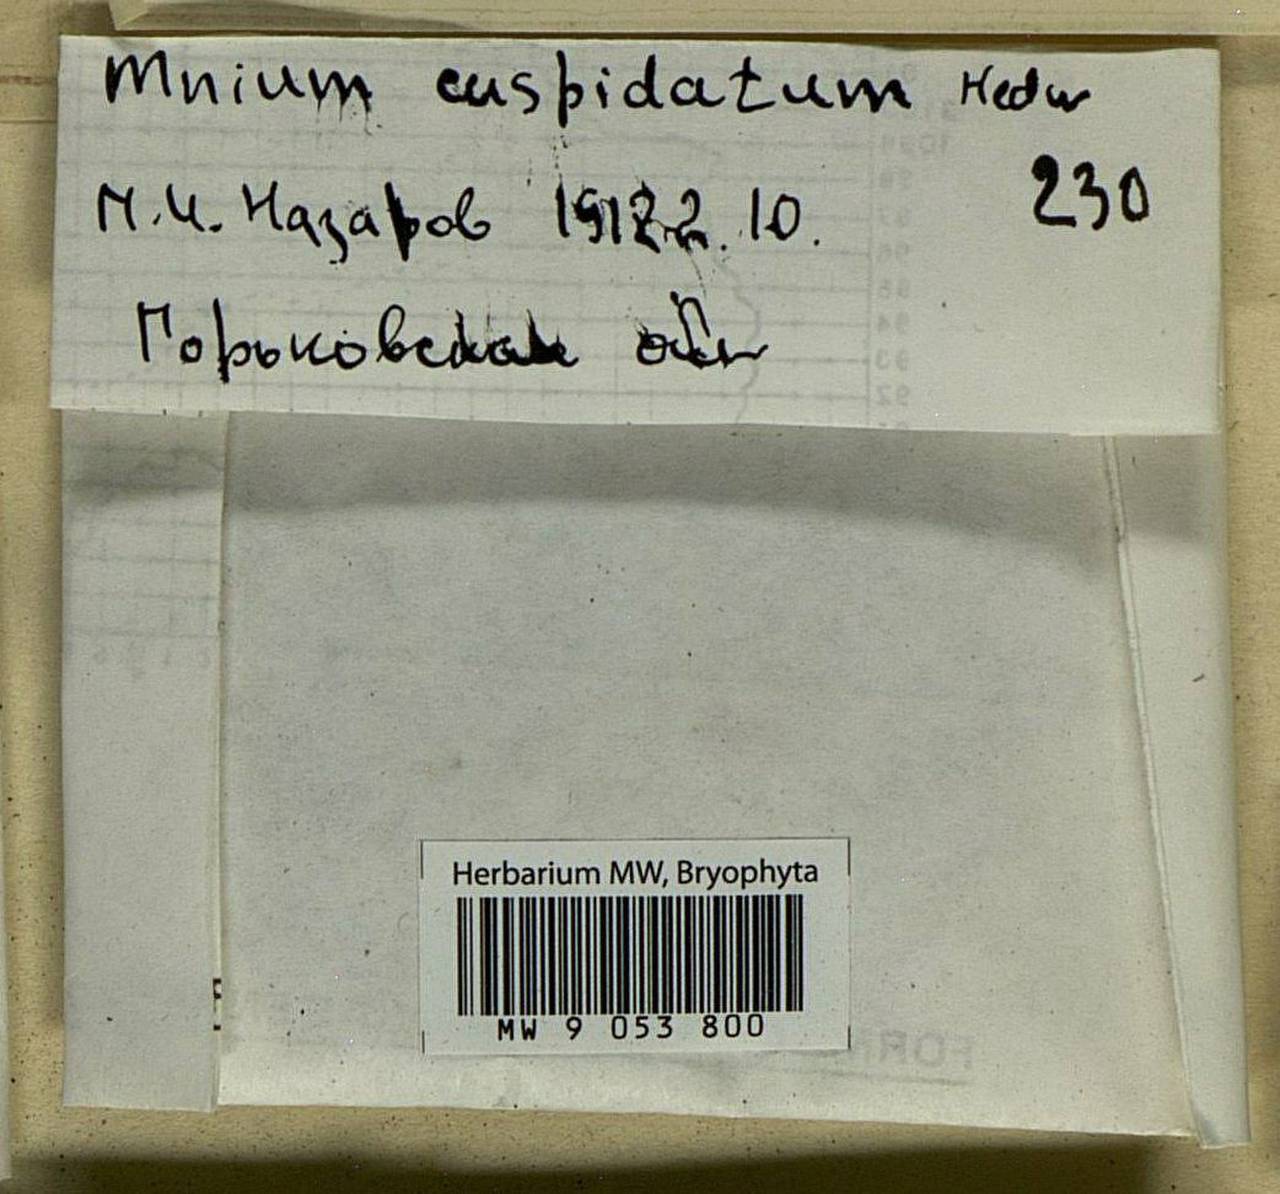 Mnium cuspidatum Hedw
М.И. Назаров 10. 230
Горьковская обл
Herbarium MW, Bryophyta
MW 9 053 800
FORM